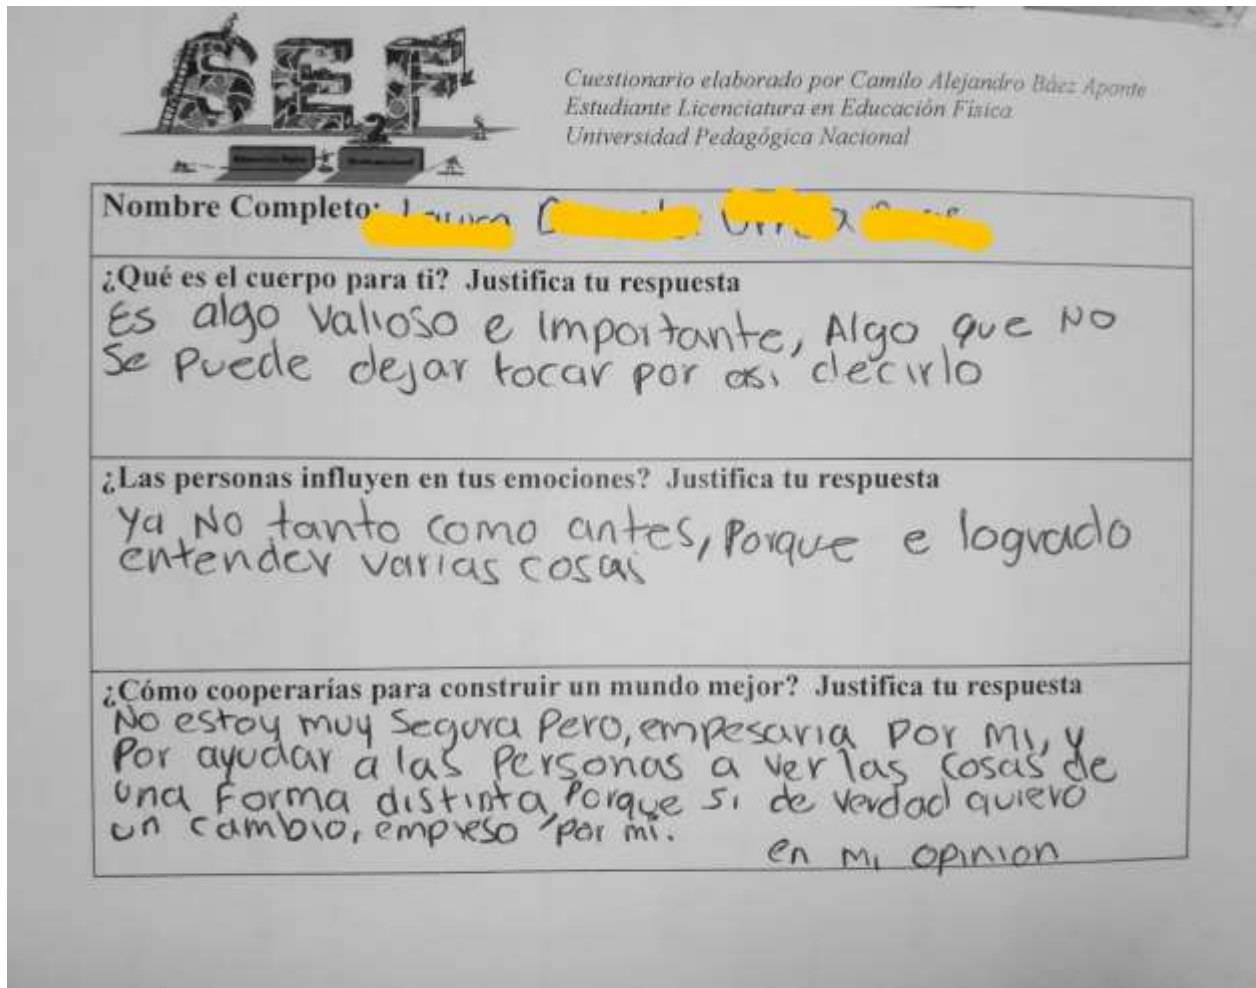 SEF
2
Cuestionario elaborado por Camilo Alejandro Báez Aponte
Estudiante Licenciatura en Educación Física
Universidad Pedagógica Nacional
Nombre Completo:
¿Qué es el cuerpo para ti? Justifica tu respuesta
Es algo Valioso e importante, Algo que NO
Se Puede dejar tocar por asi decirlo
¿Las personas influyen en tus emociones? Justifica tu respuesta
Ya NO tanto como antes, Porque e logrado
entender varias cosas
¿Cómo cooperarías para construir un mundo mejor? Justifica tu respuesta
No estoy muy Segura Pero, empesaria por mi, y
Por ayudar a las Personas a ver las cosas de
una Forma distinta, Porque si de verdad quiero
un cambio, empieso por mi.
en mi opinion